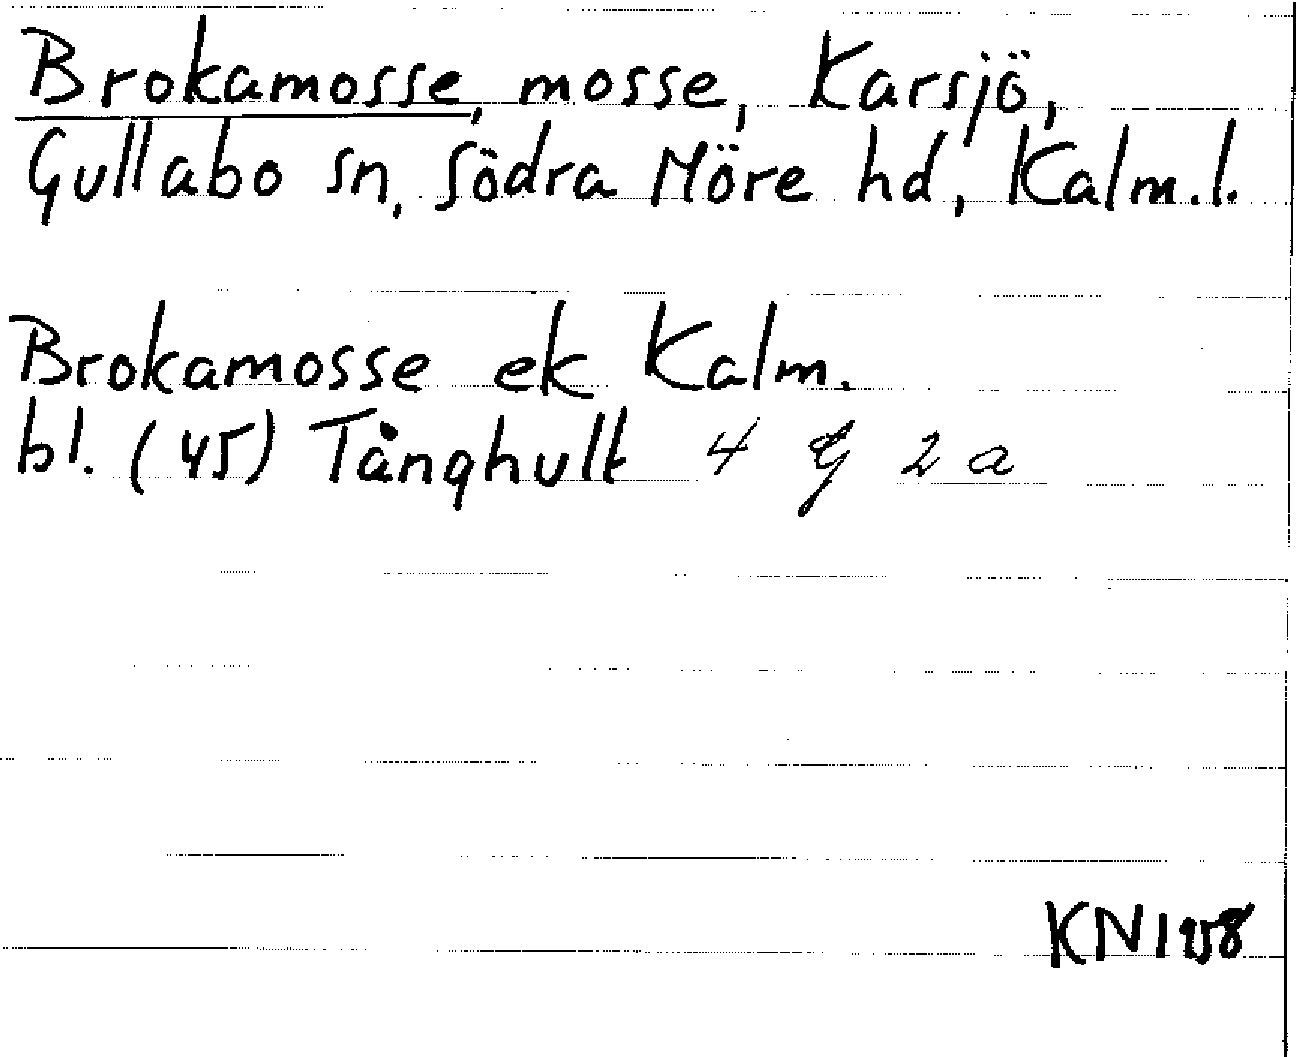 Brokamosse, mosse, Karsjö,
Gullabo sn, Södra Möre hd, Kalm.l.
Brokamosse ek Kalm.
bl. (45) Tånghult 4 G 2 a